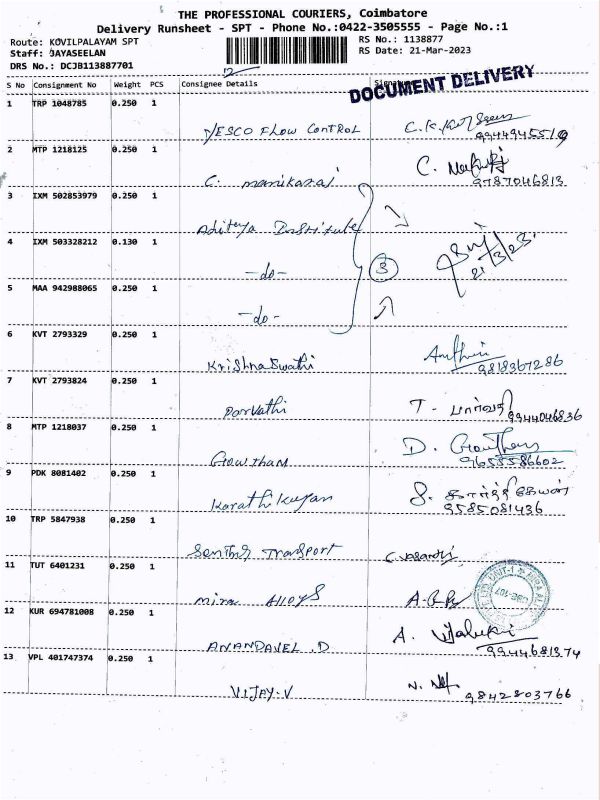 THE PROFESSIONAL COURIERS, Coimbatore
Delivery Runsheet - SPT - Phone No.:0422-3505555 - Page No.:1
Route: KOVILPALAYAM SPT
RS No.: 1138877
Staff: JAYASEELAN
RS Date: 21-Mar-2023
DRS No.: DCJB113887701
12
S No Consignment No Weight PCS Consignee Details Signature
DOCUMENT DELIVERY
1 TRP 1048785 0.250 1
VESCO FLOW CONTROL C.K.
9944945519
2 MTP 1218125 0.250 1
C. manikaraj C.
9787046813
3 IXM 502853979 0.250 1
Aditya Institute
4 IXM 503328212 0.130 1
-do- 3 21/3/23.
5 MAA 942988065 0.250 1
-do-
6 KVT 2793329 0.250 1
Krishnaswathi
9818367286
7 KVT 2793824 0.250 1
Parvathi T. பார்வதி
9944046836
8 MTP 1218037 0.250 1
Gowtham D. Gowtham
9655586602
9 PDK 8081402 0.250 1
Karathikuyan S. கார்த்திகேயன்
9585081436
10 TRP 5847938 0.250 1
Senthil Transport C.Vasanthi
11 TUT 6401231 0.250 1
UNIT-I
CBE-107
mira Alloys
12 KUR 694781008 0.250 1
ANANDAVEL .D A.
9944681374
13 VPL 401747374 0.250 1
VIJAY.V N.
9842803766